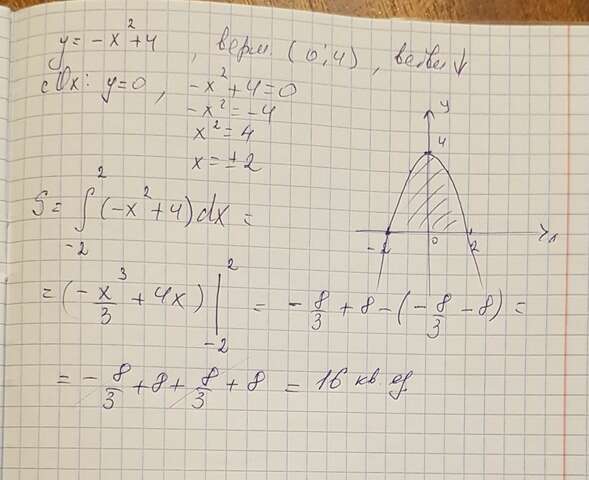 y = -x² + 4 , верш. (0; 4) , ветви ↓
с Ox: y = 0 , -x² + 4 = 0
-x² = -4
x² = 4
x = ± 2
y
4
-2 0 2 x
S = ∫₋₂² (-x² + 4) dx =
= (-x³/3 + 4x) |₋₂² = -8/3 + 8 - (-8/3 - 8) =
= -8/3 + 8 + 8/3 + 8 = 16 кв. ед